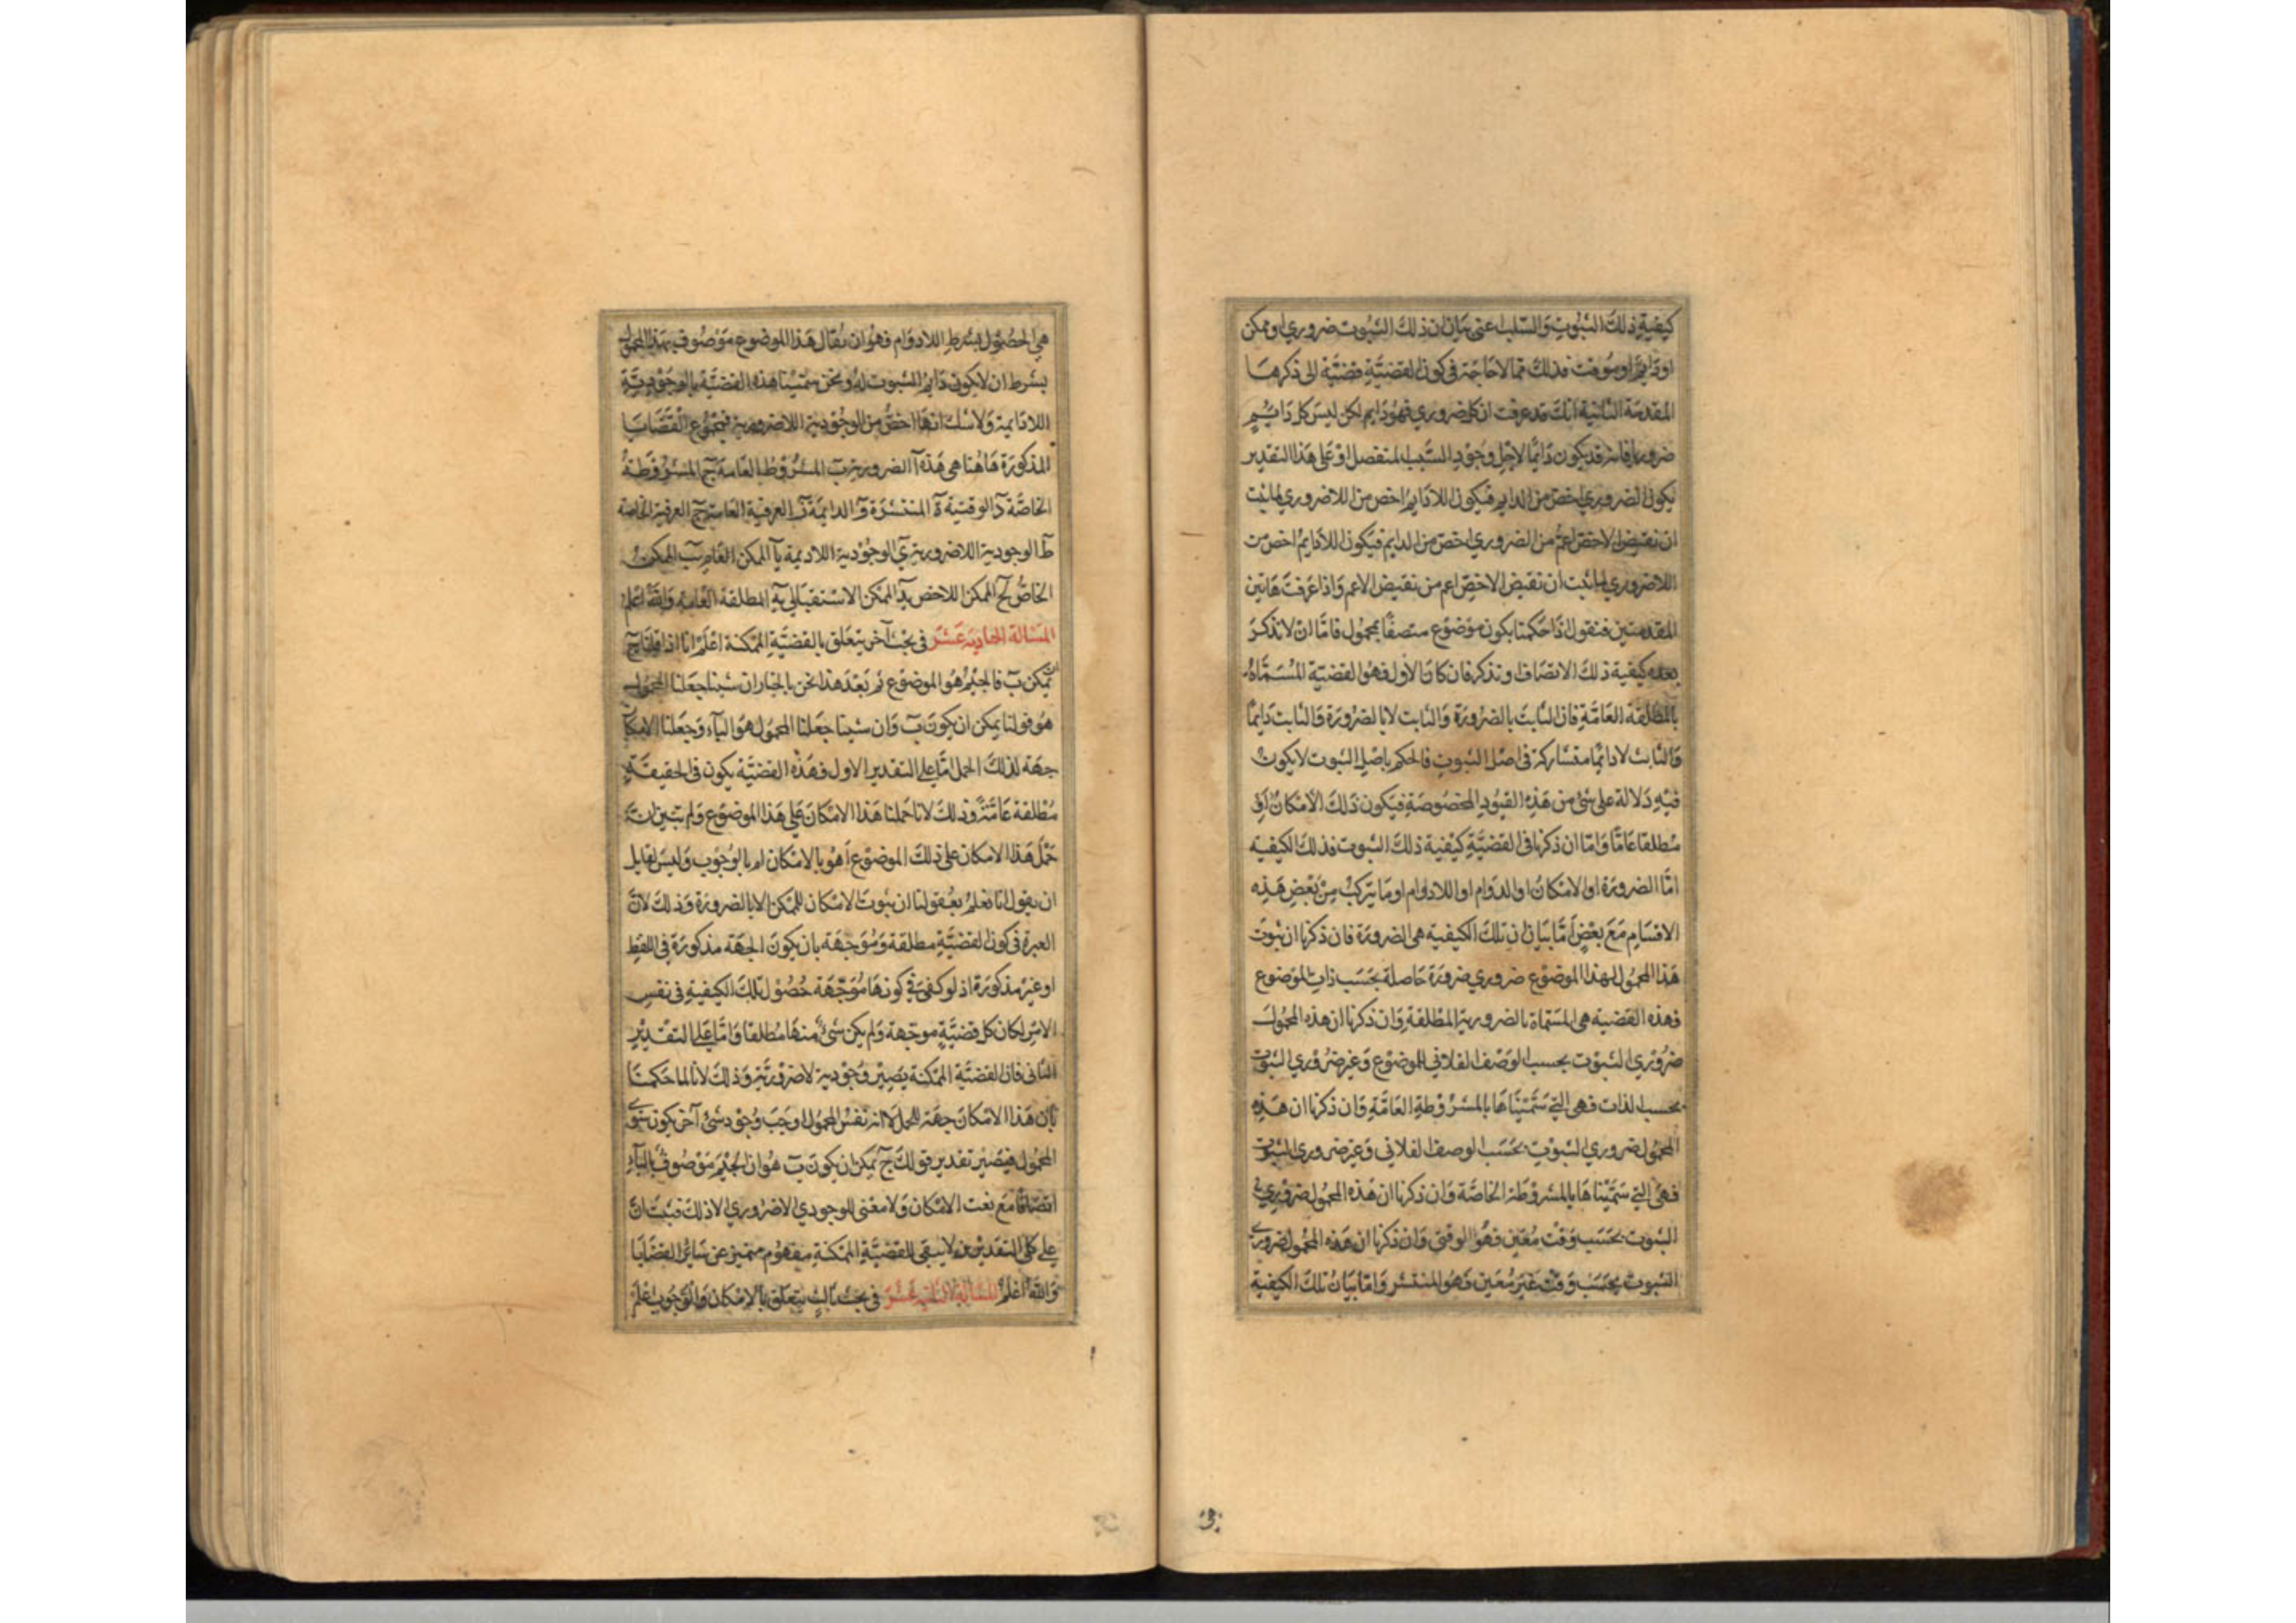 كيفية ذلك الثبوت والسلب اعنى بيان ان ذلك الثبوت ضروري او ممكن
او دايم او موقت فذلك مما لا حاجة فى كون القضية قضية الى ذكرها
المقدمة الثانية انك قد عرفت ان كل ضروري فهو دايم لكن ليس كل دايم
ضروريا فانه قد يكون دايما لاجل وجود السبب المنفصل او على هذا التقدير
يكون الضروري اخص من الدايم فيكون اللادايم اخص من اللاضروري لما ثبت
ان نقيض الاخص اعم من الضروري اخص من الدايم فيكون اللادايم اخص من
اللاضروري لما ثبت ان نقيض الاخص اعم من نقيض الاعم واذا عرفت هاتين
المقدمتين فنقول اذا حكمنا بكون موضوع متصفا بمحمول فاما ان لا نذكر
بعده كيفية ذلك الاتصاف او نذكر فان كان الاول فهو القضية المسماة
بالمطلقة العامة فان الثابت بالضرورة والثابت لا بالضرورة والثابت دايما
والثابت لا دايما متشاركة فى اصل الثبوت فالحكم باصل الثبوت لا يكون
فيه دلالة على شئ من هذه القيود المخصوصة فيكون ذلك الامكان
مطلقا عاما واما ان ذكرنا فى القضية كيفية ذلك الثبوت فذلك الكيفية
اما الضرورة او الامكان او الدوام او اللادوام او ما يتركب من بعض هذه
الاقسام مع بعض اما بيان ان تلك الكيفية هى الضرورة فان ذكرنا ان ثبوت
هذا المحمول لهذا الموضوع ضروري ضرورة حاصلة بحسب ذات الموضوع
فهذه القضية هى المسماة بالضرورية المطلقة وان ذكرنا ان هذه المحمول
ضروري الثبوت بحسب الوصف الفلاني للموضوع وغير ضروري الثبوت
بحسب الذات فهى التي سميناها بالمشروطة العامة وان ذكرنا ان هذه
المحمول ضروري الثبوت بحسب الوصف الفلاني وغير ضروري الثبوت
فهى التي سميناها بالمشروطة الخاصة وان ذكرنا ان هذه المحمول ضروري
الثبوت بحسب وقت معين فهو الوقتى وان ذكرنا ان هذه المحمول ضروري
الثبوت بحسب وقت غير معين فهو المنتشر واما بيان تلك الكيفية
هي الحصول بشرط اللادوام فهو ان يقال هذا الموضوع موصوف بهذا المحمول
بشرط ان لا يكون دايم الثبوت له ونحن سمينا هذه القضية بالوجودية
اللادايمة ولا شك انها اخص من الوجودية اللاضرورية فمجموع القضايا
المذكورة هاهنا هى هذه آ الضرورية ب المشروطة العامة ج المشروطة
الخاصة د الوقتية ه المنتشرة و الدايمة ز العرفية العامة ح العرفية الخاصة
ط الوجودية اللاضرورية ى الوجودية اللاديمة يا الممكن العام يب الممكن
الخاص يج الممكن الاخص يد الممكن الاستقبالي يه المطلقة العامة والله اعلم
المسالة الحادية عشر فى بحث آخر يتعلق بالقضية الممكنة اعلم انا اذا قلنا ج
يمكن ب فالجيم هو الموضوع ثم بعد هذا نحن بالخيار ان شينا جعلنا المحمول
هو قولنا يمكن ان يكون ب وان شينا جعلنا المحمول هو الباء وجعلنا الامكان
جهة لذلك الحمل اما على التقدير الاول فهذه القضية يكون فى الحقيقة
مطلقة عامة وذلك لانا حملنا هذا الامكان على هذا الموضوع ولم نبين ان
حمل هذا الامكان على ذلك الموضوع أهو بالامكان ام بالوجوب وليس لقايل
ان يقول انا نعلم بعقولنا ان ثبوت الامكان للممكن الا بالضرورة وذلك لان
العبرة فى كون القضية مطلقة وموجهة بان يكون الجهة مذكورة فى اللفظ
او غير مذكورة اذ لو كفى فى كونها موجهة حصول تلك الكيفية فى نفس
الامر لكان كل قضية موجهة ولم يكن شئ منها مطلقا واما على التقدير
الثانى فان القضية الممكنة يصير وجودية لا ضرورية وذلك لانا لما حكمنا
بان هذا الامكان جهة للحمل لا انه نفس المحمول اوجب وجود شئ آخر يكون سوى
المحمول فيصير تقدير قولك ج يمكن ان يكون ب هو ان الجيم موصوف بالباء
اتصافا مع نعت الامكان ولا معنى للوجودي الاضروري الا ذلك فثبت ان
على كلى التقديرين لا يبقى للقضية الممكنة مفهوم متميز عن سائر القضايا
والله اعلم المسالة الثانية عشر فى بحث ثالث يتعلق بالامكان والوجوب اعلم